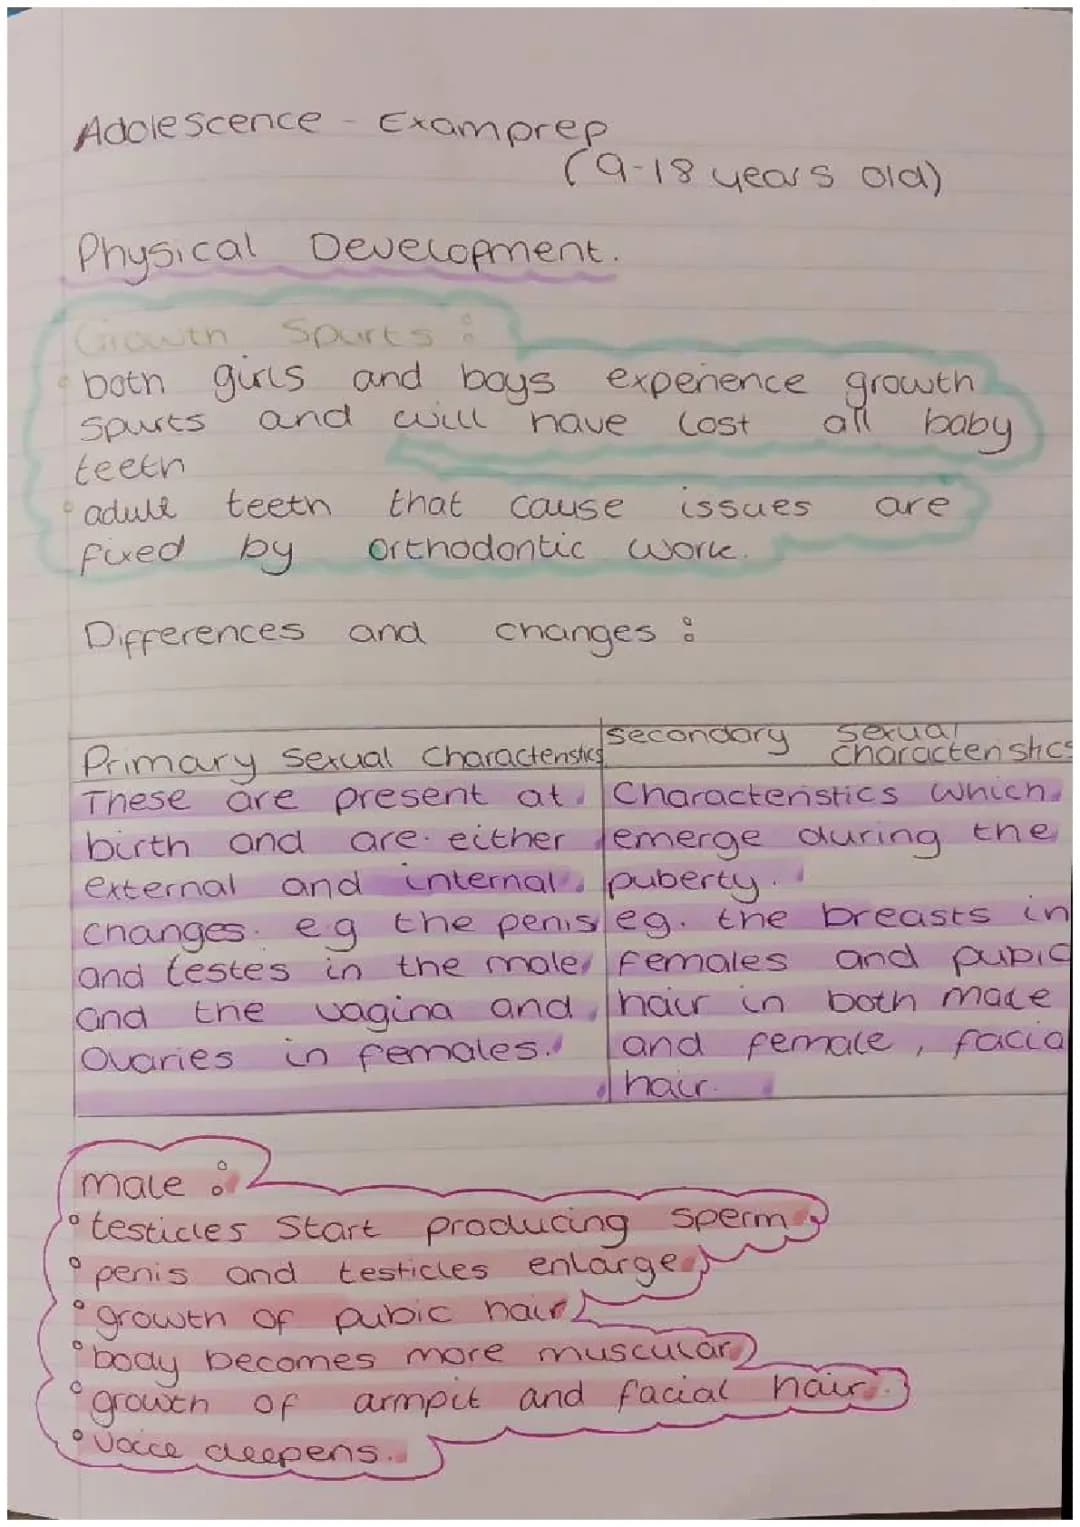 Adolescence - Exam prep
(9-18 years old)
Physical Development.
Growth Spurts:
• both girls and boys experience growth
spurts and will have lost all baby
teeth
• adult teeth that cause issues are
fixed by orthodontic work.
Differences and changes:
Primary Sexual Characteristics
These are present at
birth and are either
external and internal
changes. e.g the penis
and testes in the male
and the vagina and
ovaries in females.
secondary sexual
characteristics
Characteristics which
emerge during the
puberty.
eg. the breasts in
females and pubic
hair in both male
and female, facia
hair.
male:
• testicles start producing sperm
• penis and testicles enlarge
• growth of pubic hair
• body becomes more muscular
• growth of armpit and facial hair.
• voice deepens.